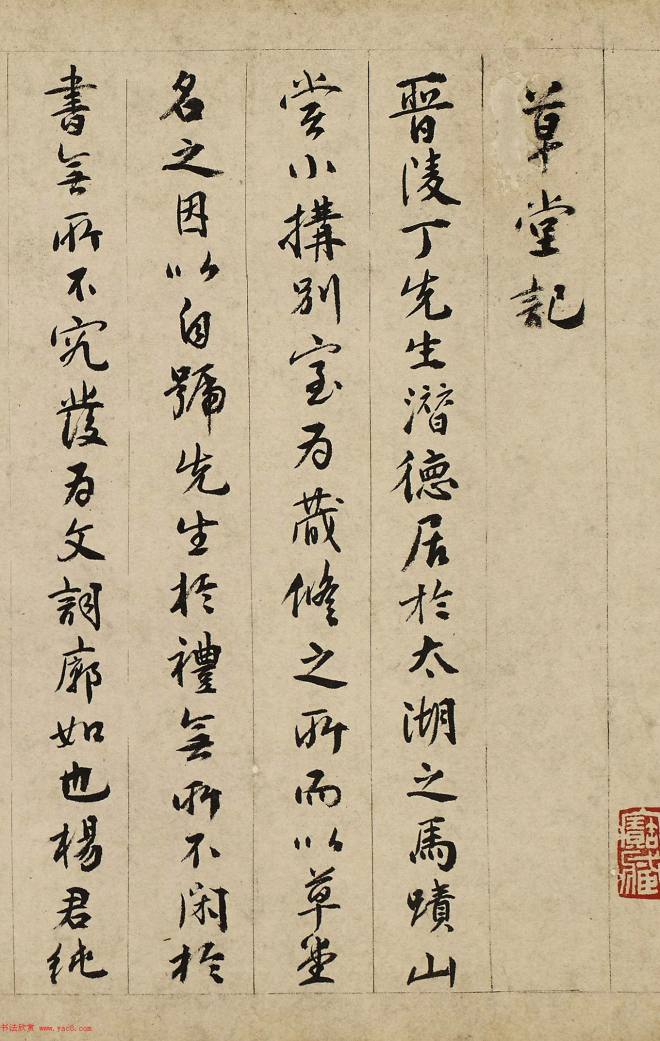 草堂記
晉陵丁先生潛德居於太湖之馬蹟山
嘗小搆別室為藏脩之所而以草堂
名之因以自號先生於禮無所不閑於
書無所不究發為文詞廓如也楊君純
书法欣赏 www.yac8.com